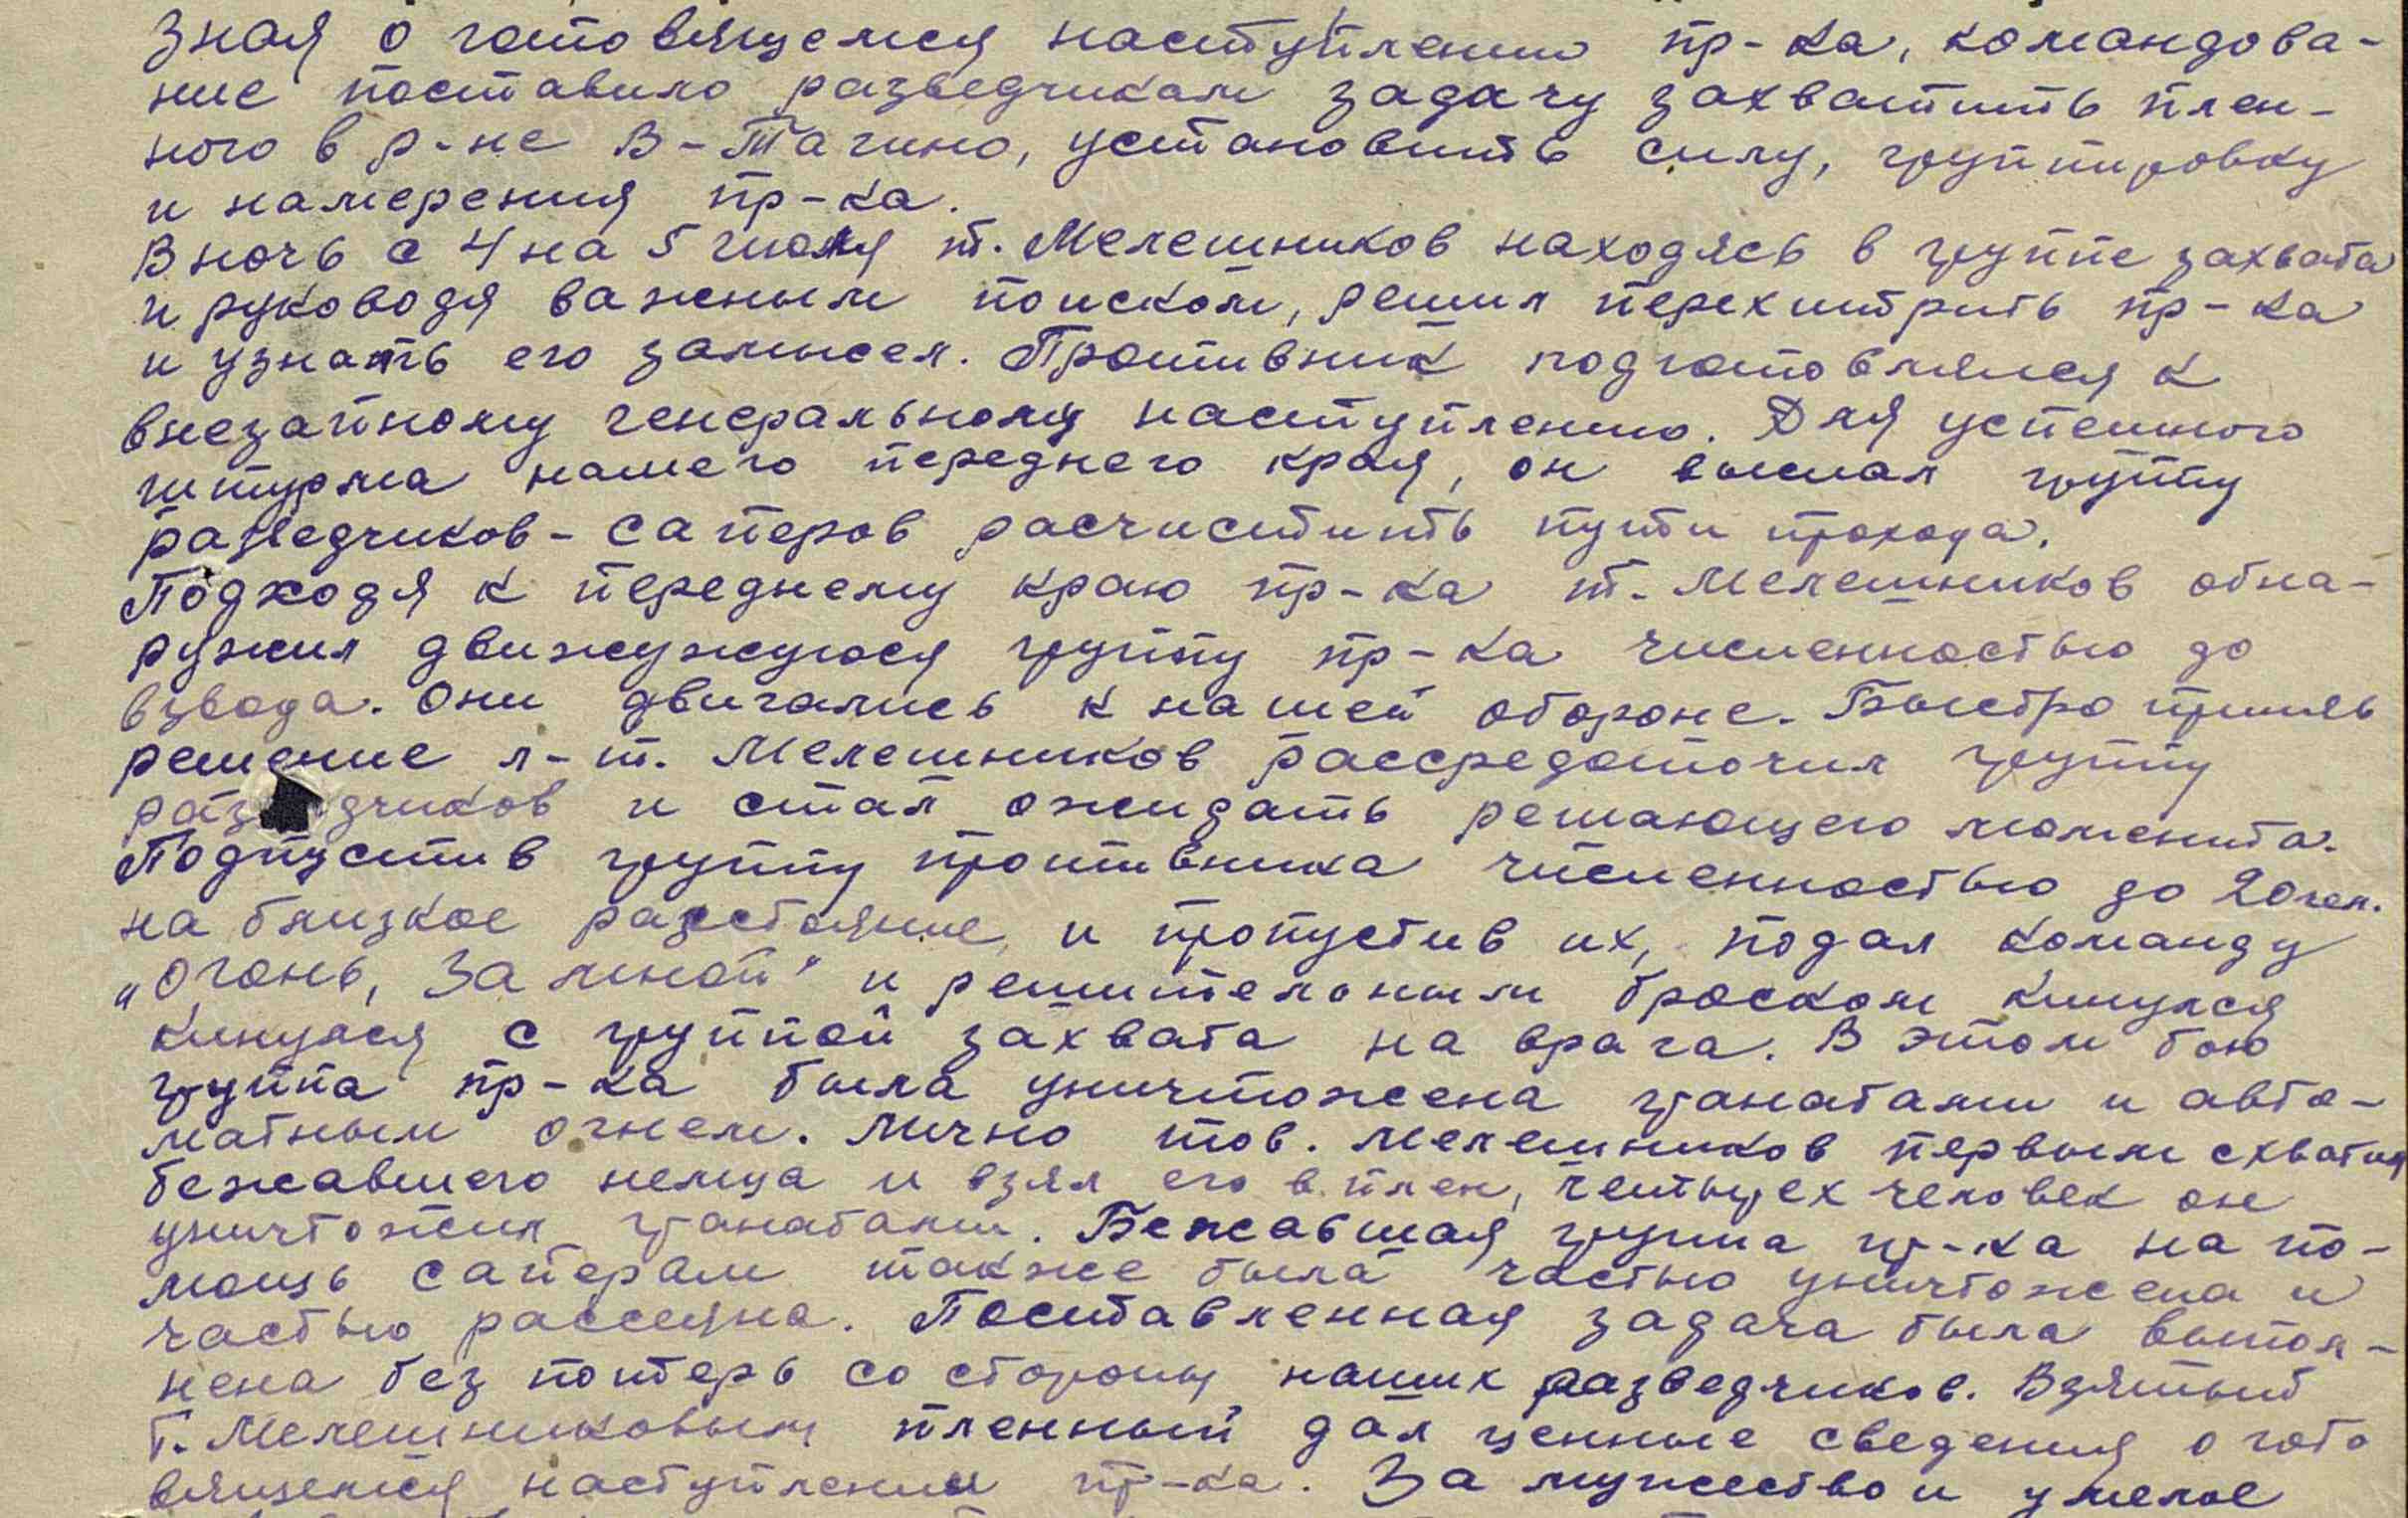 Зная о готовящемся наступлении пр-ка, командова-
ние поставило разведчикам задачу захватить плен-
ного в р-не В-Тагино, установить силу, группировку
и намерения пр-ка.
В ночь с 4 на 5 июля т. Мелешников находясь в группе захвата
и руководя важным поиском, решил перехитрить пр-ка
и узнать его замысел. Противник подготовлялся к
внезапному генеральному наступлению. Для успешного
штурма нашего переднего края, он выслал группу
разведчиков-саперов расчистить пути прохода.
Подходя к переднему краю пр-ка т. Мелешников обна-
ружил движужуюся группу пр-ка численностью до
взвода. Они двигались к нашей обороне. Быстро приняв
решение л-т. Мелешников рассредоточил группу
разведчиков и стал ожидать решающего момента.
Подпустив группу противника численностью до 20 чел.
на близкое расстояние, и пропустив их, подал команду
„Огонь, За мной" и решительным броском кинулся
кинулся с группой захвата на врага. В этом бою
группа пр-ка была уничтожена гранатами и авто-
матным огнем. Лично тов. Мелешников первым схватил
бежавшего немца и взял его в плен, четырех человек он
уничтожил гранатами. Бежавшая группа пр-ка на по-
мощь саперам также была частью уничтожена и
частью рассеяна. Поставленная задача была выпол-
нена без потерь со стороны наших разведчиков. Взятый
т. Мелешниковым пленный дал ценные сведения о гото
вящемся наступлении пр-ка. За мужество и умелое